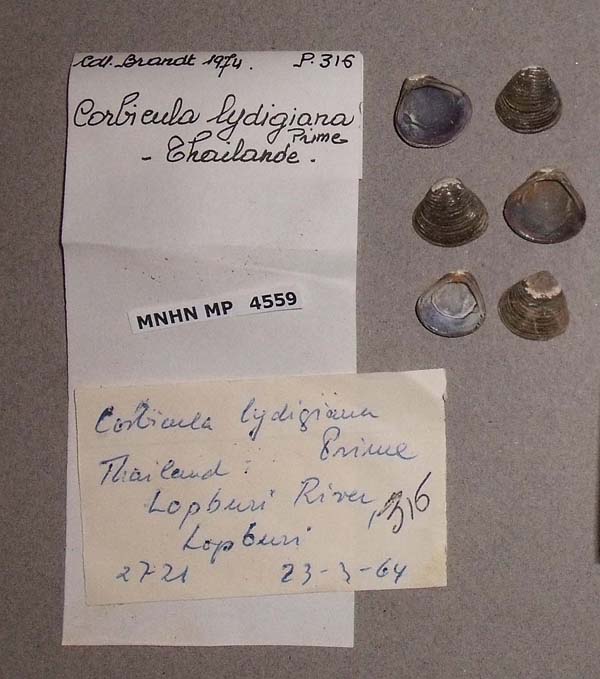 Coll. Brandt 1974. P. 316
Corbicula lydigiana
Prime
- Thaïlande.
MNHN MP 4559
Corbicula lydigiana
Prime
Thailand:
Lopburi River,
316
Lopburi
2721 23-3-64